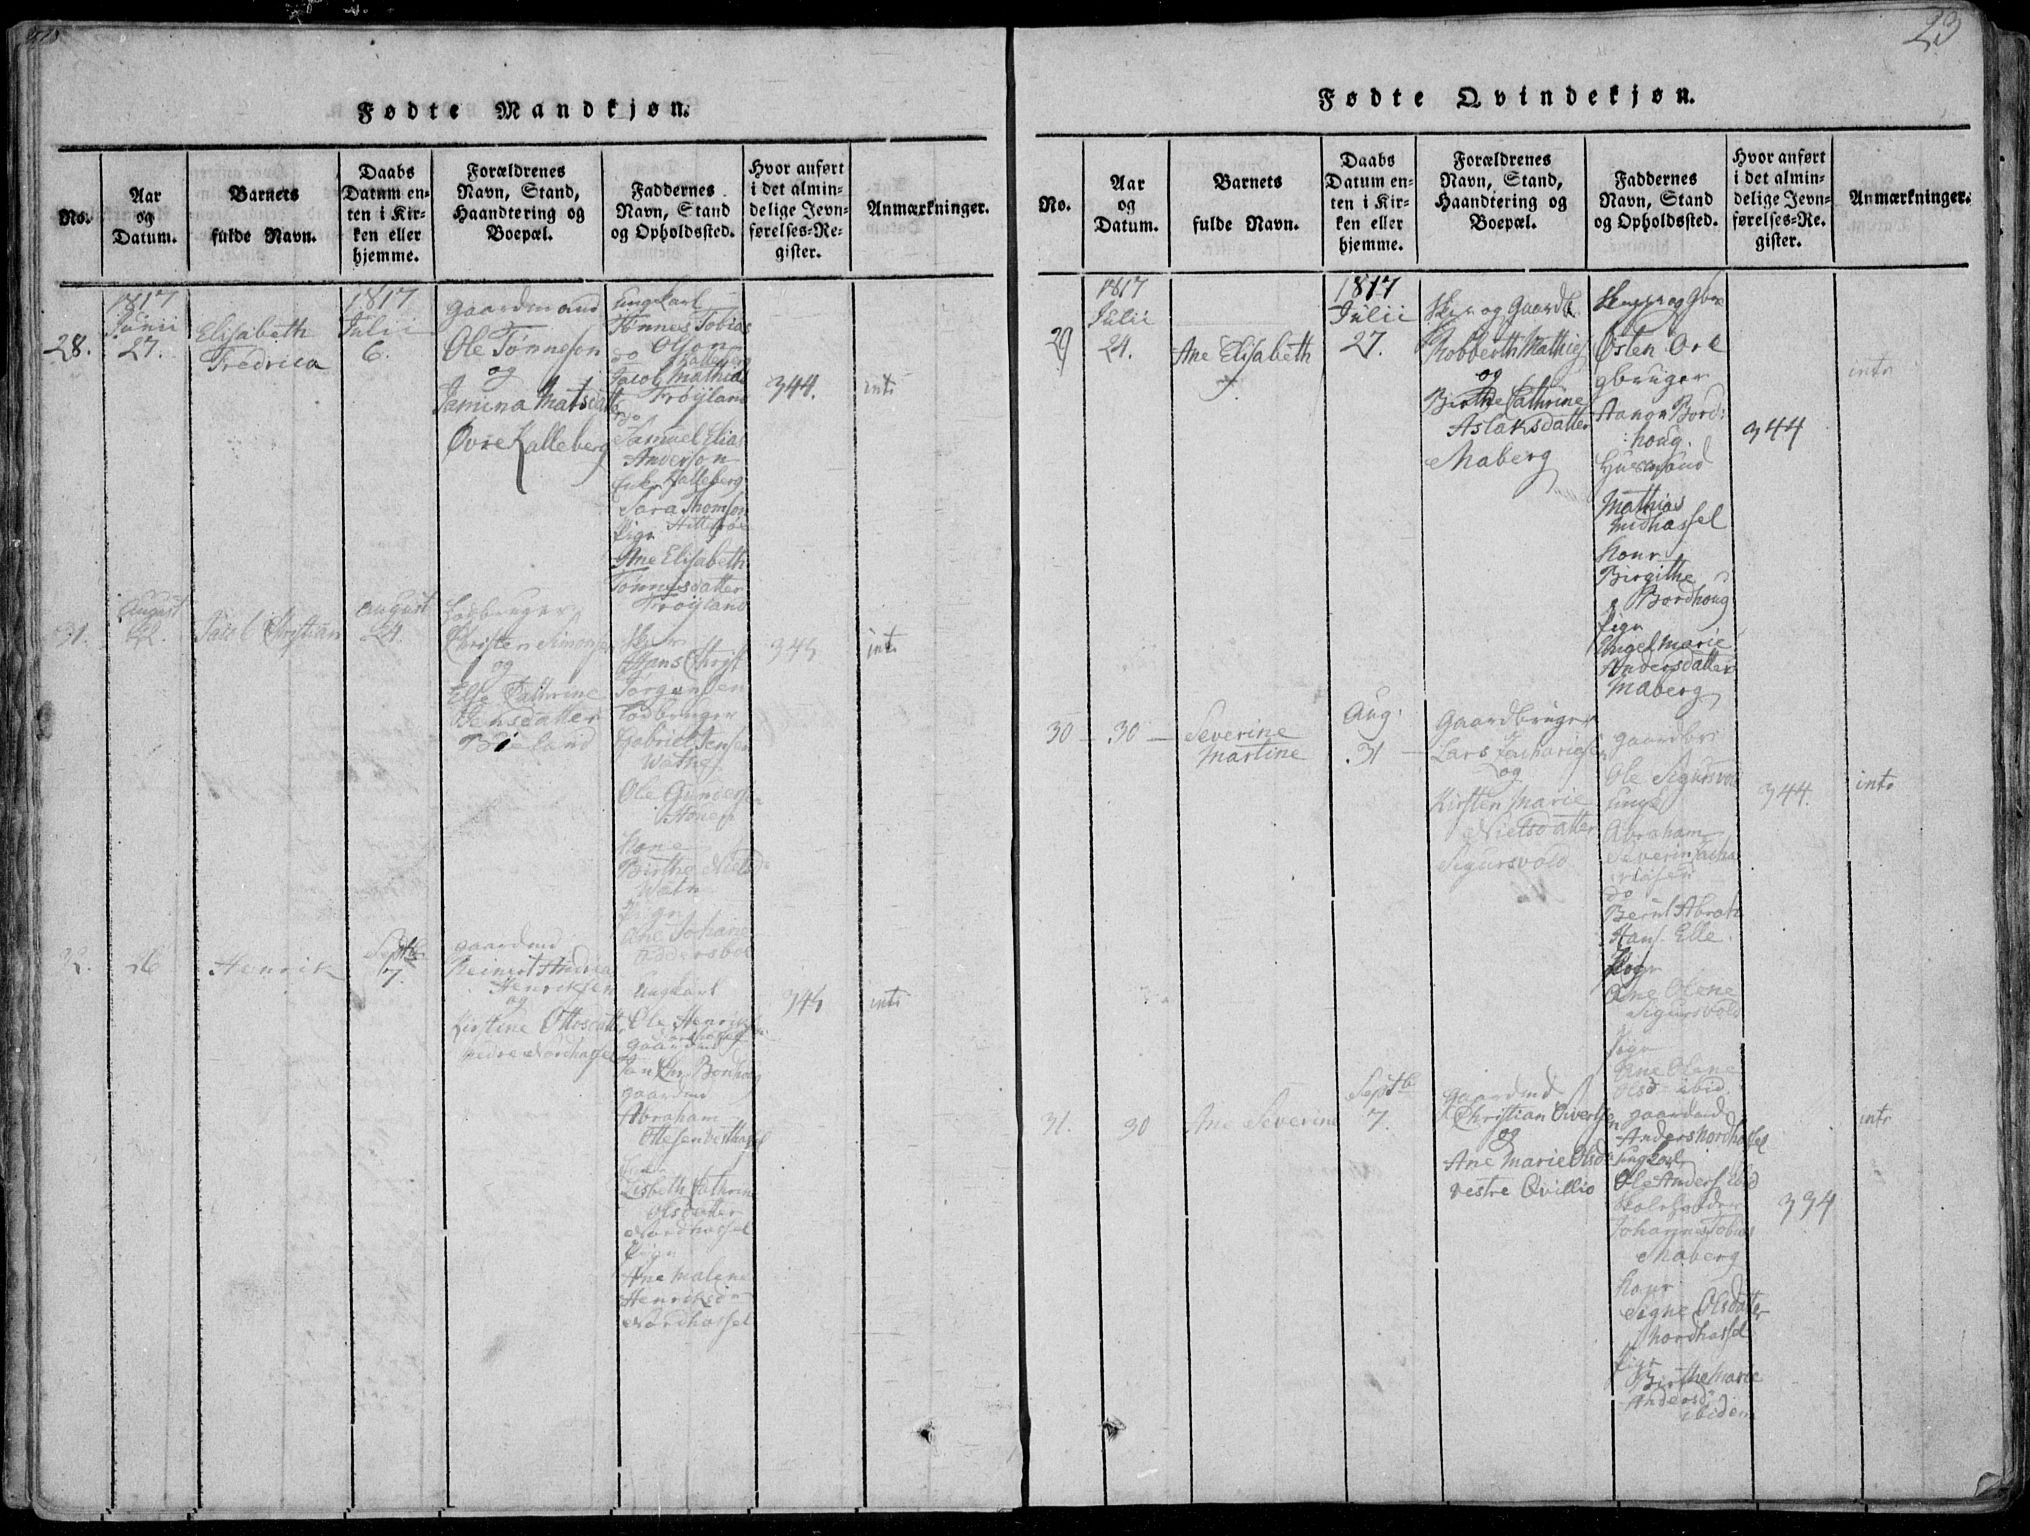 23
Fødte Mandkjøn.
No.
Aar
og
Datum.
Barnets
fulde Navn.
Daabs
Datum en-
ten i Kir-
ken eller
hjemme.
Forældrenes
Navn, Stand,
Haandtering og
Boepæl.
Faddernes
Navn, Stand
og Opholdssted.
Hvor anført
i det almin-
delige Jevn-
førelses-Re-
gister.
Anmærkninger.
28.
1817
Junii
27.
Elisabeth
Fredrica
1817
Julii
6.
Gaardmand
Ole Tønneson
og
Jamina Matsdatt
Øvre Kalleberg
Ungkarl
Tønnes Tobias
Olson
do Kalleberg
Jacob Mathias
Frøyland
do
Samuel Elias
Anderson
Kalleberg
Sara Thomson
Pige
Ane Elisabeth
Tønnesdatter
Frøyland
344.
intr
31.
August
Jacob Christian
August
24.
Christen Simonsen
og
Else Cathrine
Jensdatter
Bieland
Hans Christ
Jørgensen
Lodbruger
Gabriel Jensen
Watne
Ole Gunderson
Kone
Birthe Nielsd
Watn
Pige
Ane Johane
345
intr
26
Henrik
Septb
7.
gaardmd
Reinert Andrea
Henriksen
og
Kirstine Ottosdatt
nedre Nordhassel
Ungkarl
Ole Henriksen
gaardmd
Jan Chr. Bonhoug
gaardmd
Abraham
Ottesen Vesthassel
Lisbeth Cathrine
Olsdatter
Nordhassel
Pige
Ane Malene
Henriksd
Nordhassel
345
intr
Fødte Qvindekjøn.
No.
Aar
og
Datum.
Barnets
fulde Navn.
Daabs
Datum en-
ten i Kir-
ken eller
hjemme.
Forældrenes
Navn, Stand,
Haandtering og
Boepæl.
Faddernes
Navn, Stand
og Opholdssted.
Hvor anført
i det almin-
delige Jevn-
førelses-Re-
gister.
Anmærkninger.
29
1817
Julii
24.
Ane Elisabeth
1817
Julii
27.
og Gaardb
Robberth Mathies
og
Birthe Cathrine
Aslaksdatter
Maberg
Østen Ore
gbruger
Aanon Bord-
houg.
Huusmand
Mathias
Midhassel
Kone
Birgithe
Bordhoug
Pige
Engel Marie
Andersdatter
Maberg
344
intr
30
30
Severine
Martine
Aug:
31
Gaardbruger
Lars Zachariesen
og
Kirsten Marie
Nielsdatter
Sigursvold
gaardbr
Ole Sigursvold
Ungk
Abraham
Severin Zacha
riasen
do
Bernt Abrah
Hans. Elle.
Pige
Ane Olene
Sigursvold
Pige
Ane Olene
Olsd ibid
344.
intr
31.
30
Ane Severine
Septb
7.
gaardmd
Christian Sivertsen
og
Ane Marie Olsd
vestre Qvillio
gaardmd
Anders Nordhassel
Ungkarl
Ole Anders. Ibid
Skoleholder
Johannes Tobias
Maberg
Kone
Signe Olsdatter
Nordhassel
Pige
Birthe Marie
Andersd
ibidem
394
intr